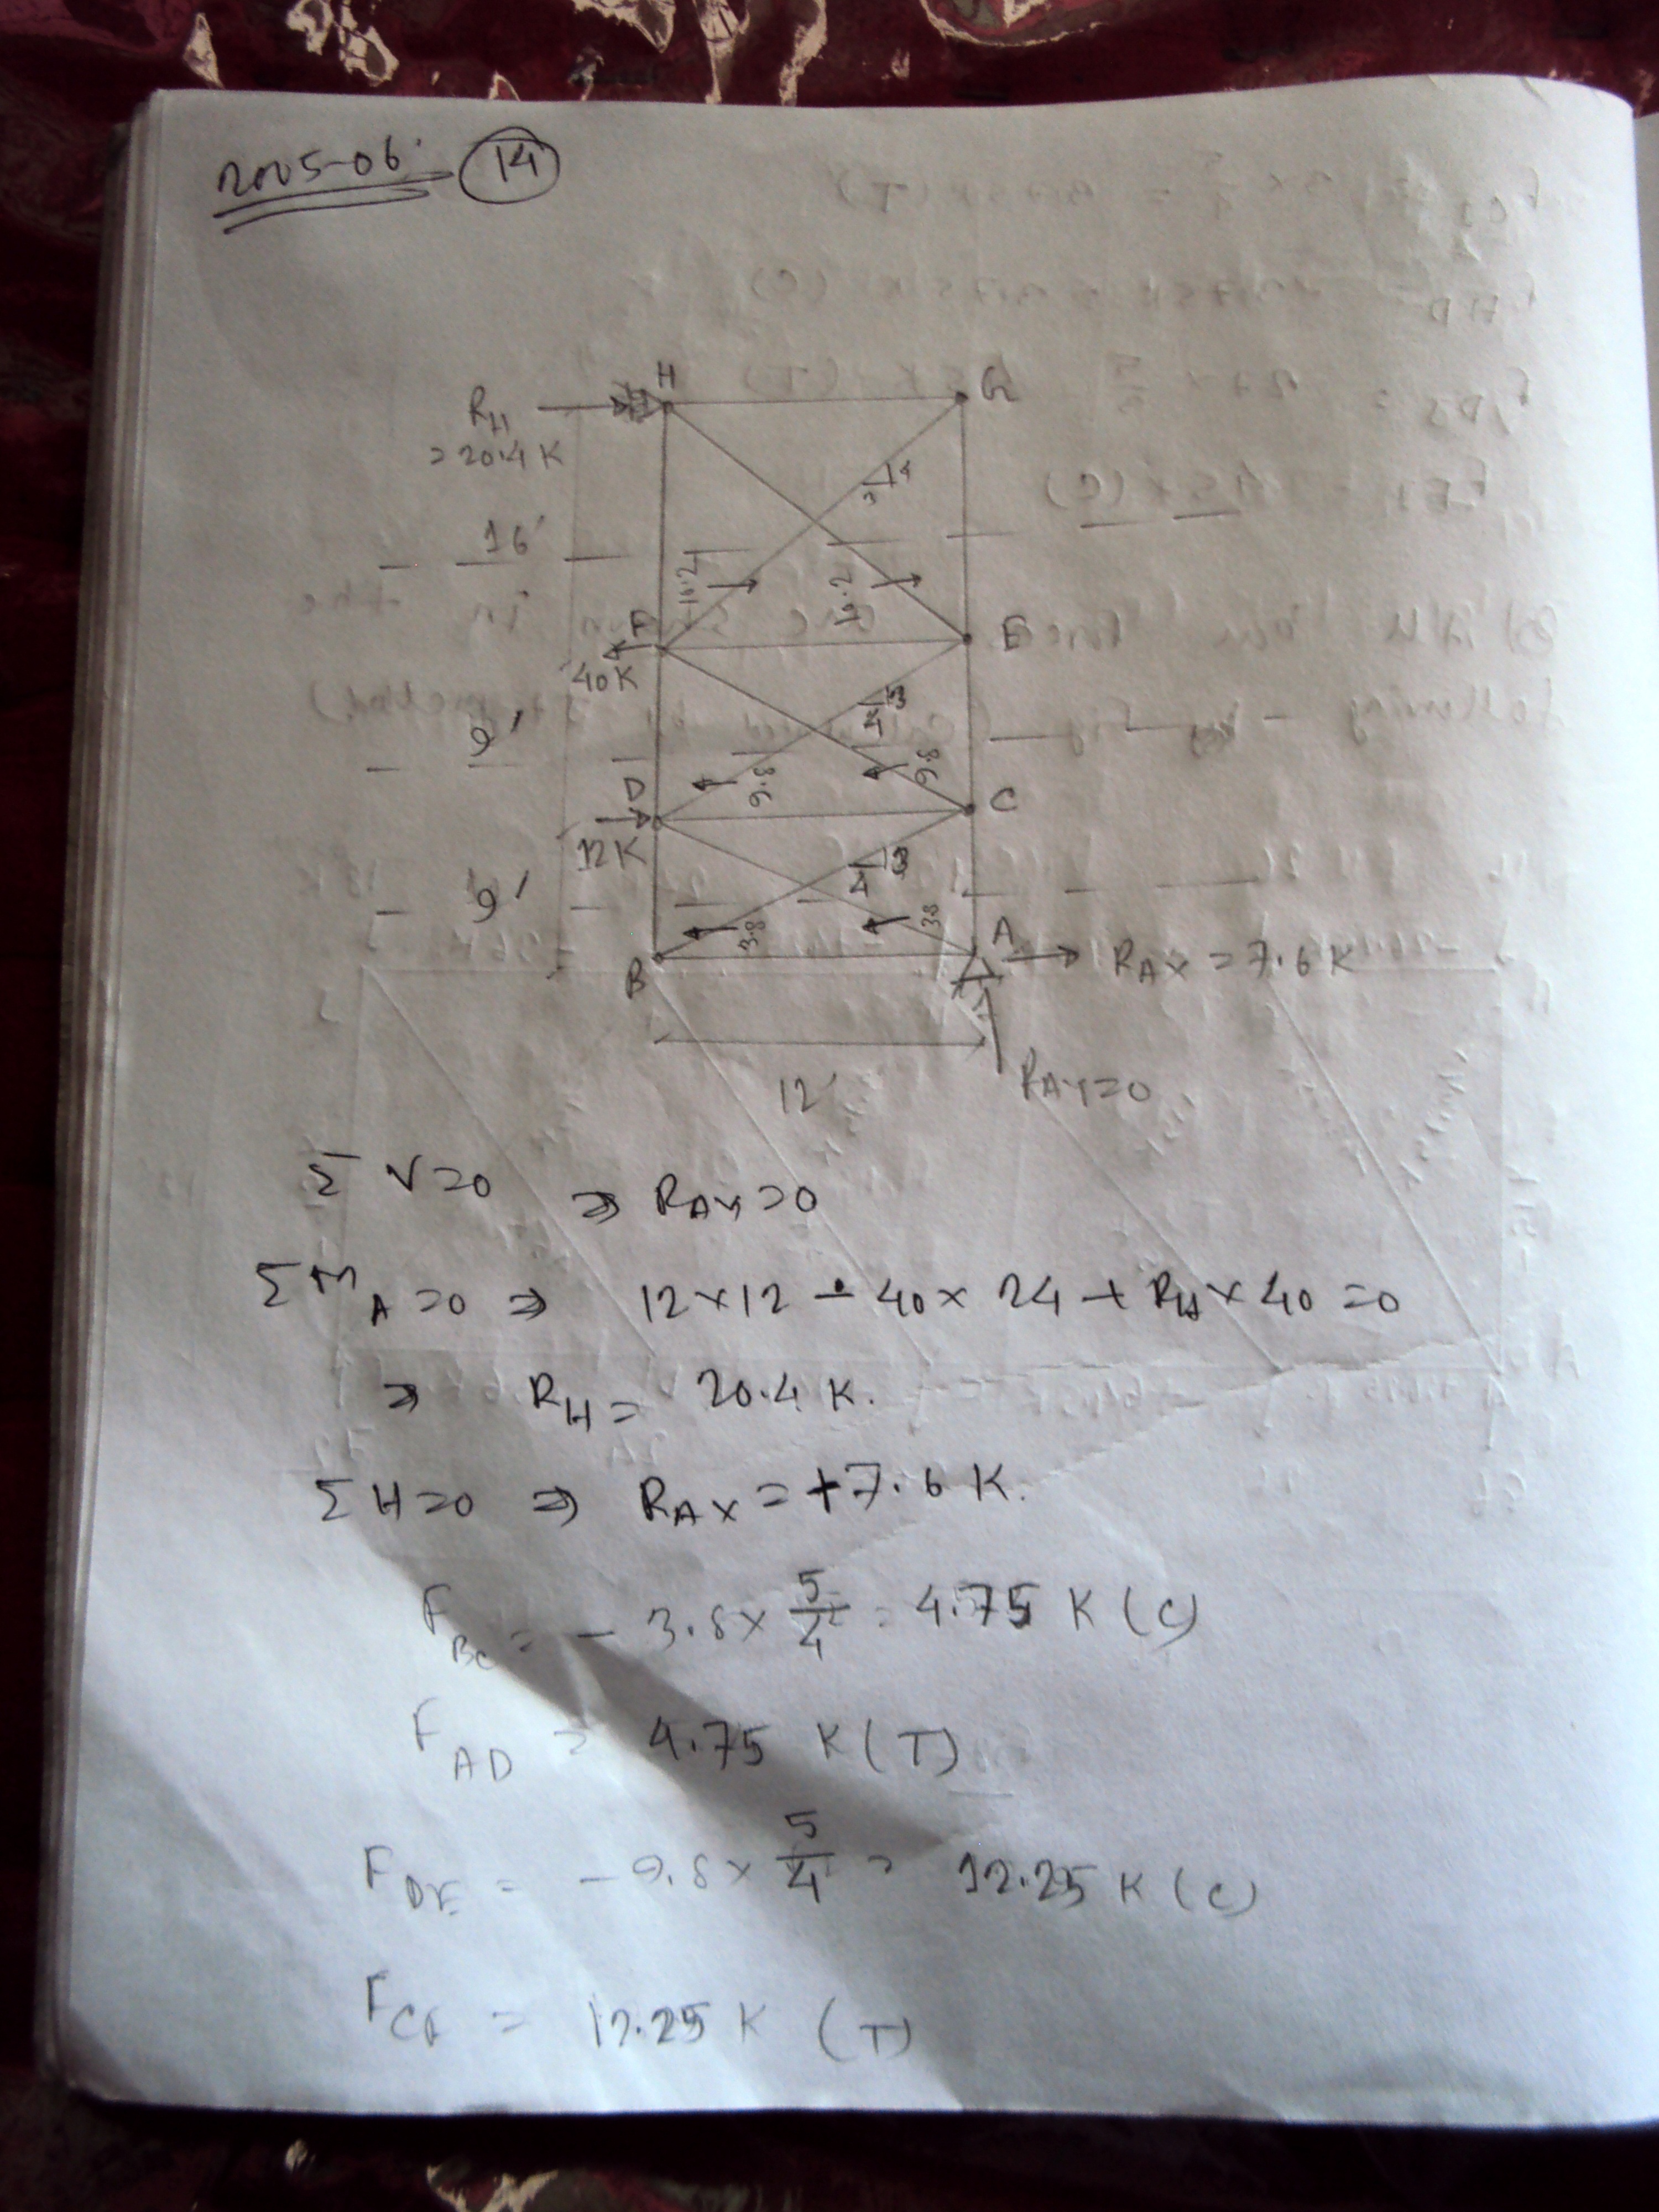 2005-06. 14
H G
R_H = 20.4 K
3 4
16'
10.2 10.2
F E
40K
3 4
9'
9.8 9.8
D C
12K
3 4
9'
3.8 3.8
B A R_AX = 7.6 K
12' R_AY = 0
Σ V = 0 ⇒ R_AY = 0
Σ M_A = 0 ⇒ 12 × 12 - 40 × 24 + R_H × 40 = 0
⇒ R_H = 20.4 K.
Σ H = 0 ⇒ R_AX = +7.6 K.
F_BC = - 3.8 × 5/4 = 4.75 K (C)
F_AD = 4.75 K (T)
F_DE = - 9.8 × 5/4 = 12.25 K (C)
F_CF = 12.25 K (T)